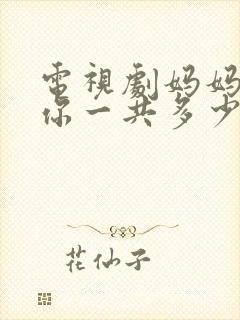 電視劇妈妈
你一共多少
花仙子